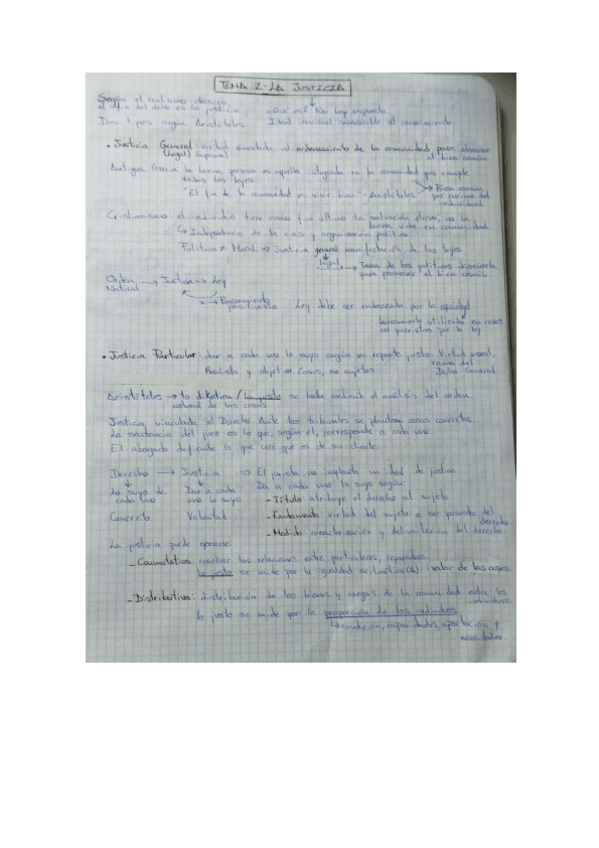 TEMA 2-LA JUSTICIA
Según el realismo clásico,
el fin del dcho es la justicia ¿Qué es? No hay respuesta
Dos tipos según Aristóteles Ideal inaccesible al conocimiento.
• Justicia General: virtud vinculada al ordenamiento de la comunidad, para alcanzar
(Legal) el bien común
Antigua Grecia: la buena persona es aquella integrada en la comunidad que cumple
todas las leyes.
"El fin de la comunidad es vivir bien" - Aristóteles → Bien común
por encima del
individual
Cristianismo: el individuo tiene como fin último la salvación eterna, no la
buena vida en comunidad
↳ Independencia de la civis y organización política
Política ≠ Moral ⇒ Justicia general manifestación de las leyes
legal → Tarea de los políticos diseñarla
para promover el bien común
Orden → Justicia → Ley
Natural
x → Pensamiento
positivista Ley debe ser enderezada por la equidad
herramienta utilizada en casos
no previstos por la ley
• Justicia Particular: dar a cada uno lo suyo según un reparto justo. Virtud moral,
rama del
Realista y objetiva. Cosas, no sujetos. Dcho General
Aristóteles → to dikaion / lo justo se halla mediante el análisis del orden
natural de las cosas
Justicia vinculada al Derecho. Ante los tribunales se plantean casos concretos.
La sentencia del juez es lo que, según él, corresponde a cada uno.
El abogado defiende lo que cree que es de su cliente.
Derecho → Justicia ⇒ El jurista no implanta un ideal de justicia
Lo suyo de Dar a cada Da a cada uno lo suyo según:
cada uno uno lo suyo - Título: atribuye el derecho al sujeto
Concreto Voluntad - Fundamento: virtud del sujeto a ser poseedor del
derecho.
- Medida: caracterización y delimitación del derecho.
La justicia puede ejercerse:
- Conmutativa: resolver las relaciones entre particulares, reparadora.
lo justo se mide por la igualdad aritmética: valor de las cosas.
- Distributiva: distribución de los bienes y cargas de la comunidad entre los
individuos.
lo justo se mide por la proporción de los individuos
↳ condición, capacidades, aportación y
necesidades